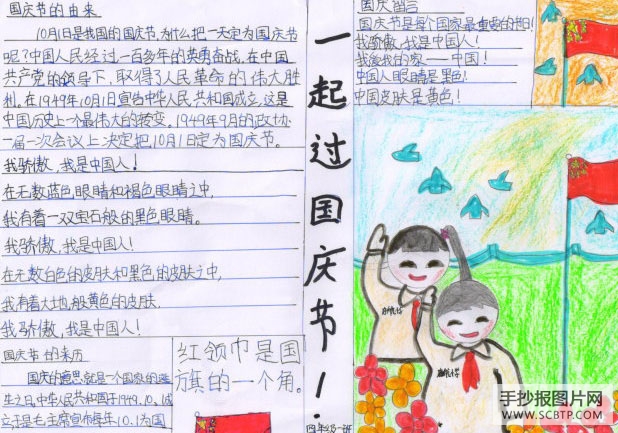 国庆节的由来
10月1日是我国的国庆节,为什么把一天定为国庆节
呢?中国人民经过一百多年的英勇奋战,在中国
共产党的领导下,取得了人民革命的伟大胜
利,在1949年10月1日宣告中华人民共和国成立,这是
中国历史上一个最伟大的转变,1949年9月的政协
一届一次会议上决定把10月1日定为国庆节。
我骄傲,我是中国人!
在无数蓝色眼睛和褐色眼睛之中,
我有着一双宝石般的黑色眼睛。
我骄傲,我是中国人!
在无数白色的皮肤和黑色的皮肤之中,
我有着大地般黄色的皮肤,
我骄傲,我是中国人!
国庆节的来历
国庆的意思,就是一个国家的诞
生之日,中华人民共和国于1949.10.1成
立于是毛主席宣布每年10.1为国
红领巾是国
旗的一个角。
一起过国庆节!
国庆留言
国庆节是每个国家最重要的节日!
我骄傲,我是中国人!
我爱我的家——中国!
中国人眼睛是黑色!
中国皮肤是黄色!
四年级一班
手抄报图片网
WWW.SCBTP.COM